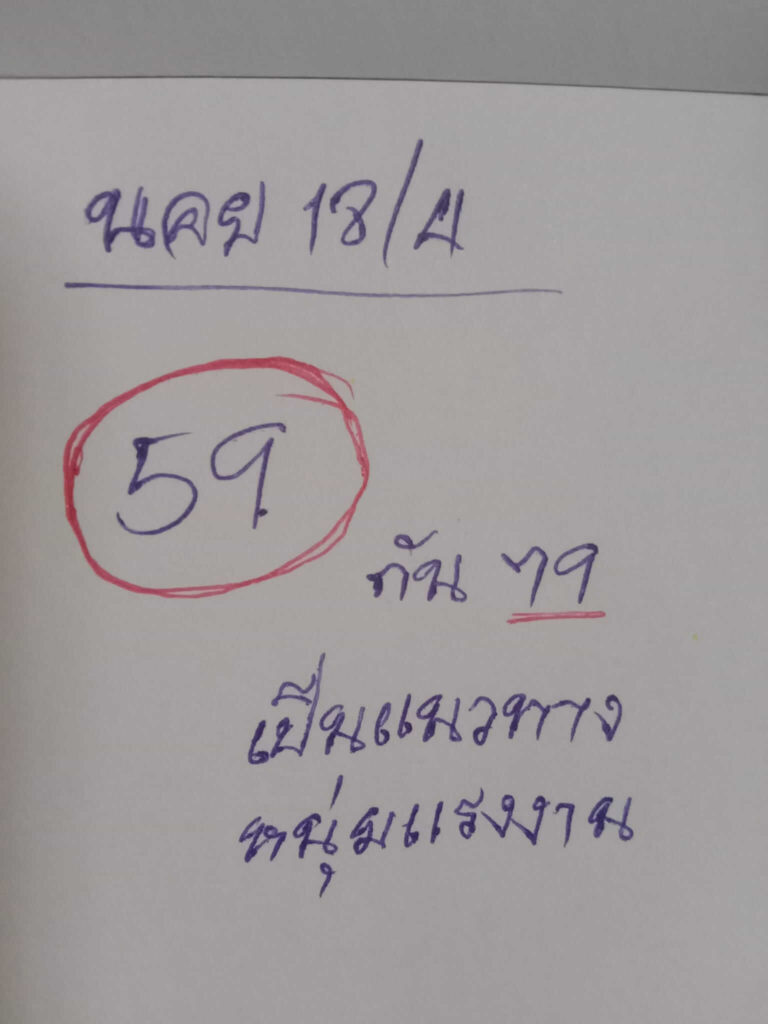 นคย 18/4
59
กัน 79
เป็นแนวทาง
หนุ่มแรงงาน